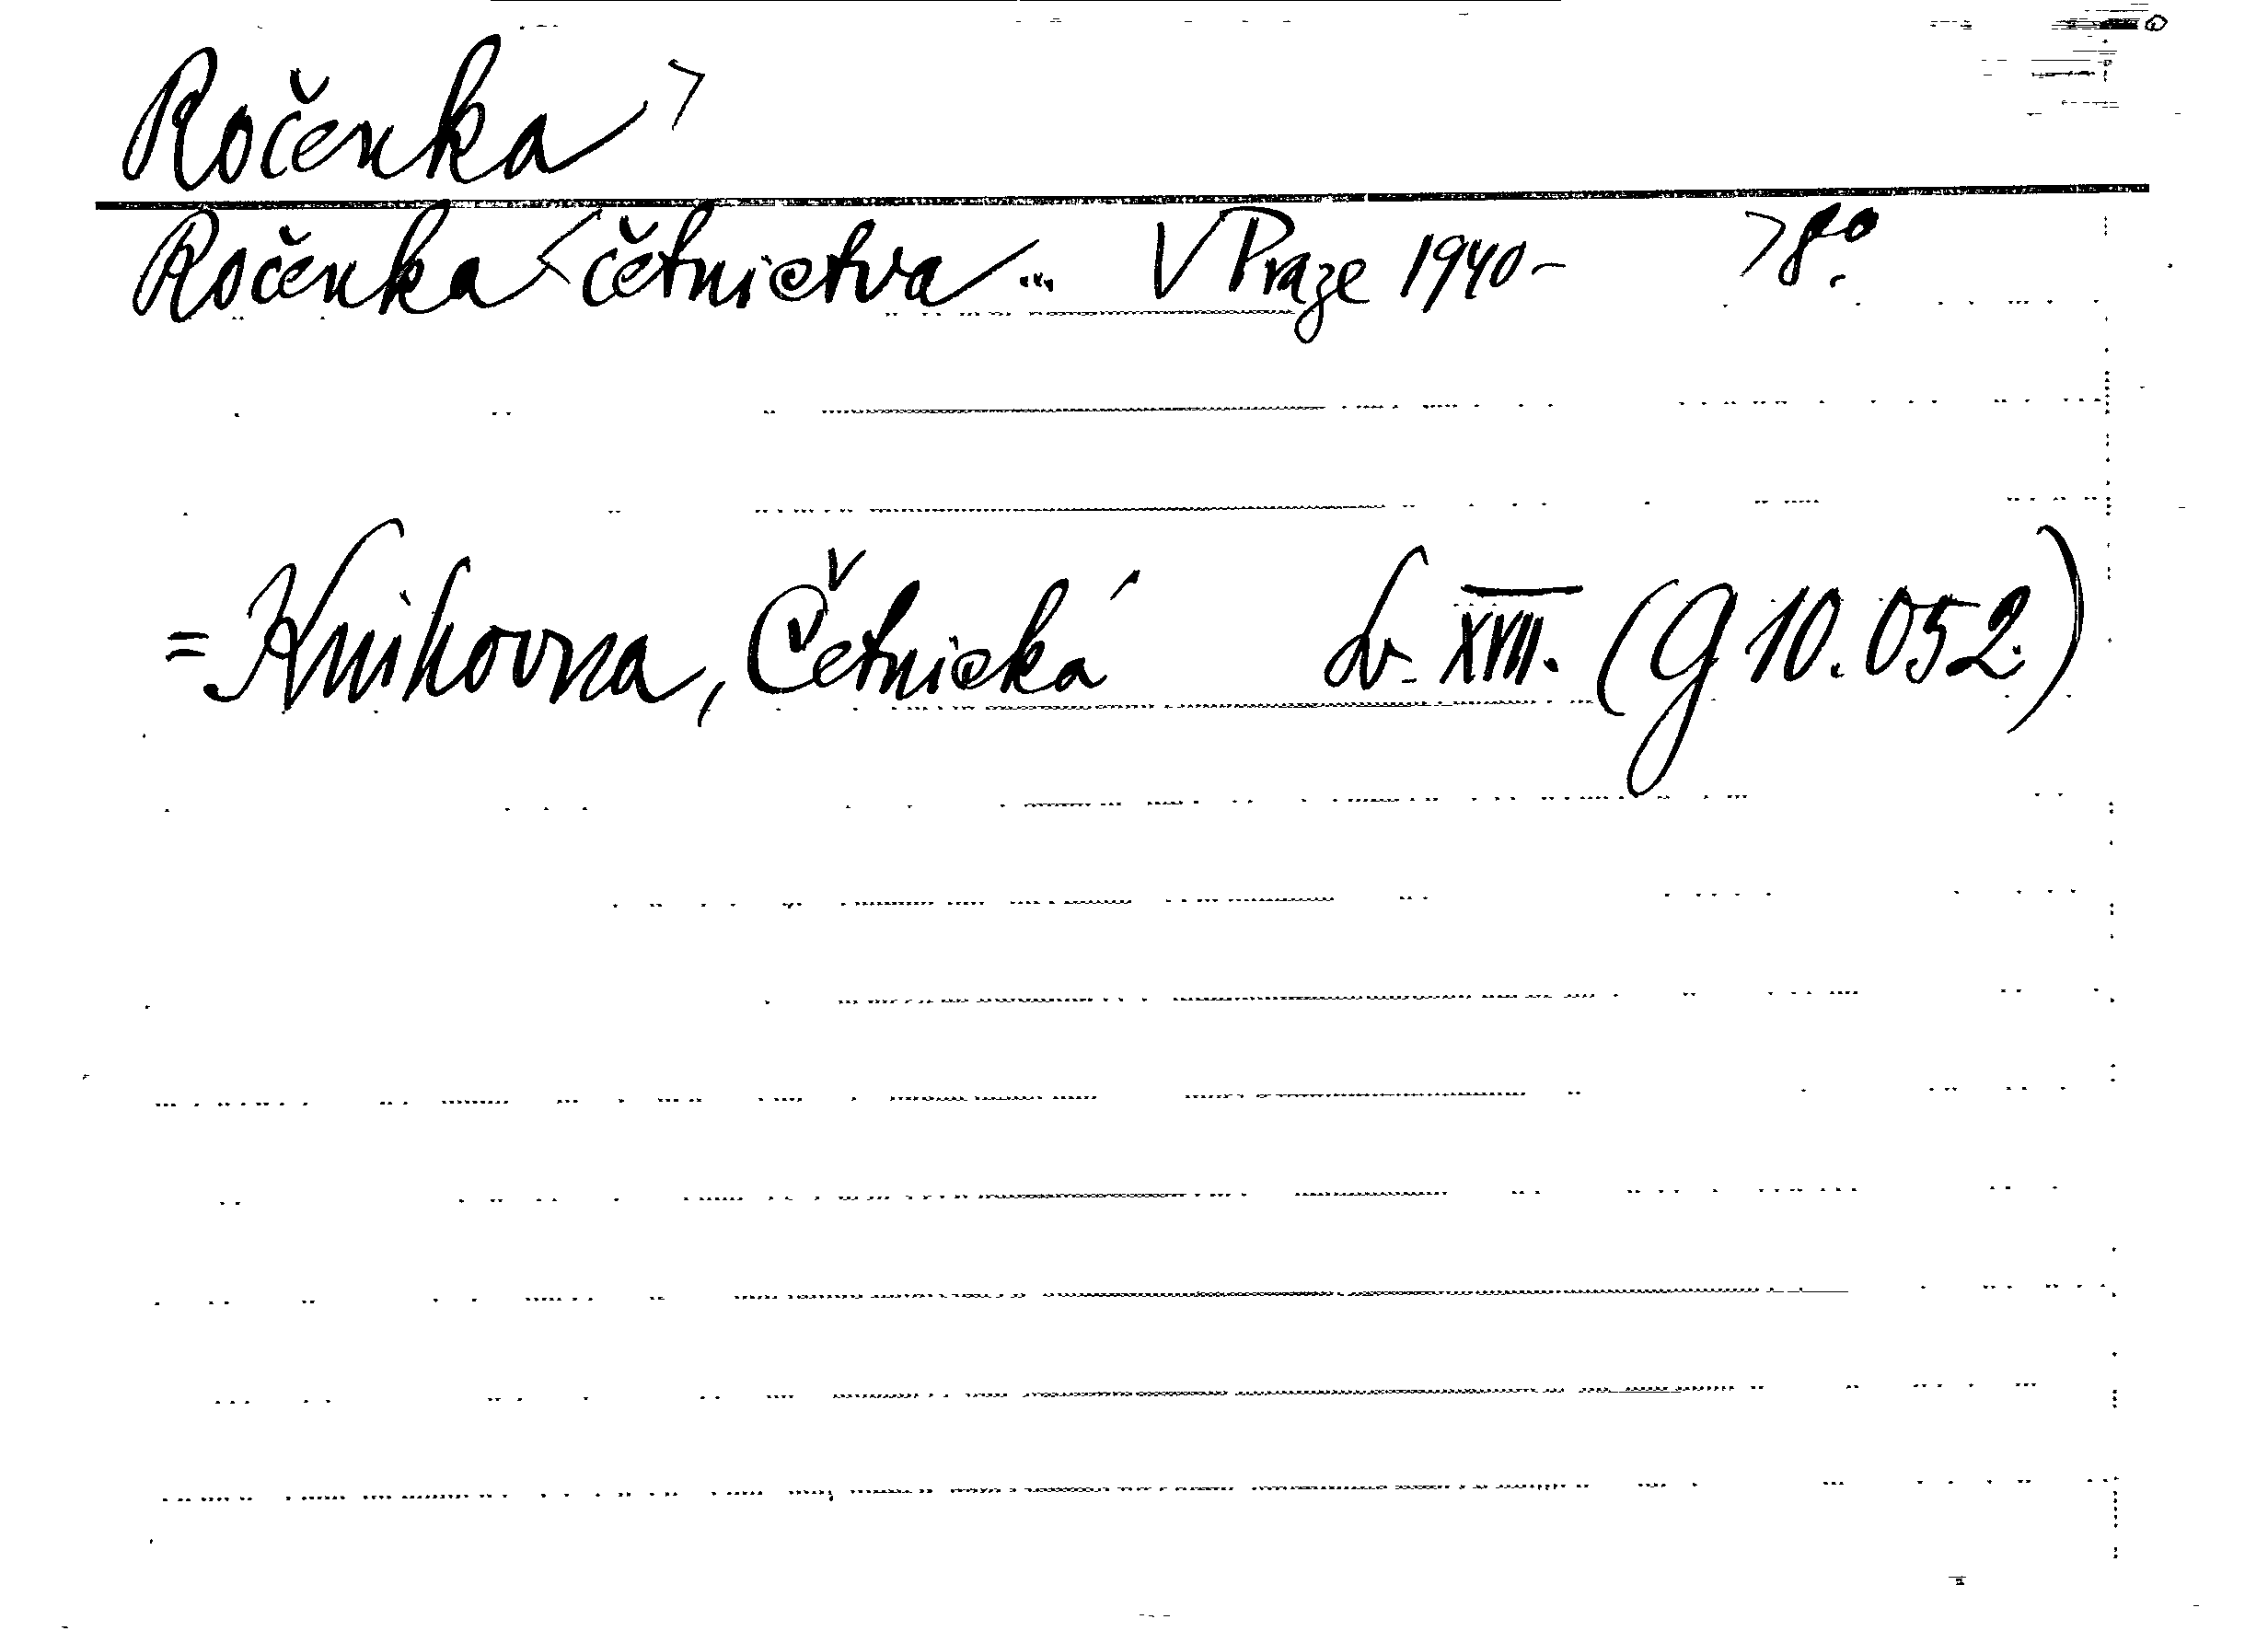 Ročenka >
Ročenka < četnictva ... V Praze 1940- > 8°.
= Knihovna, Četnická sv. XVII. (G 10.052.)